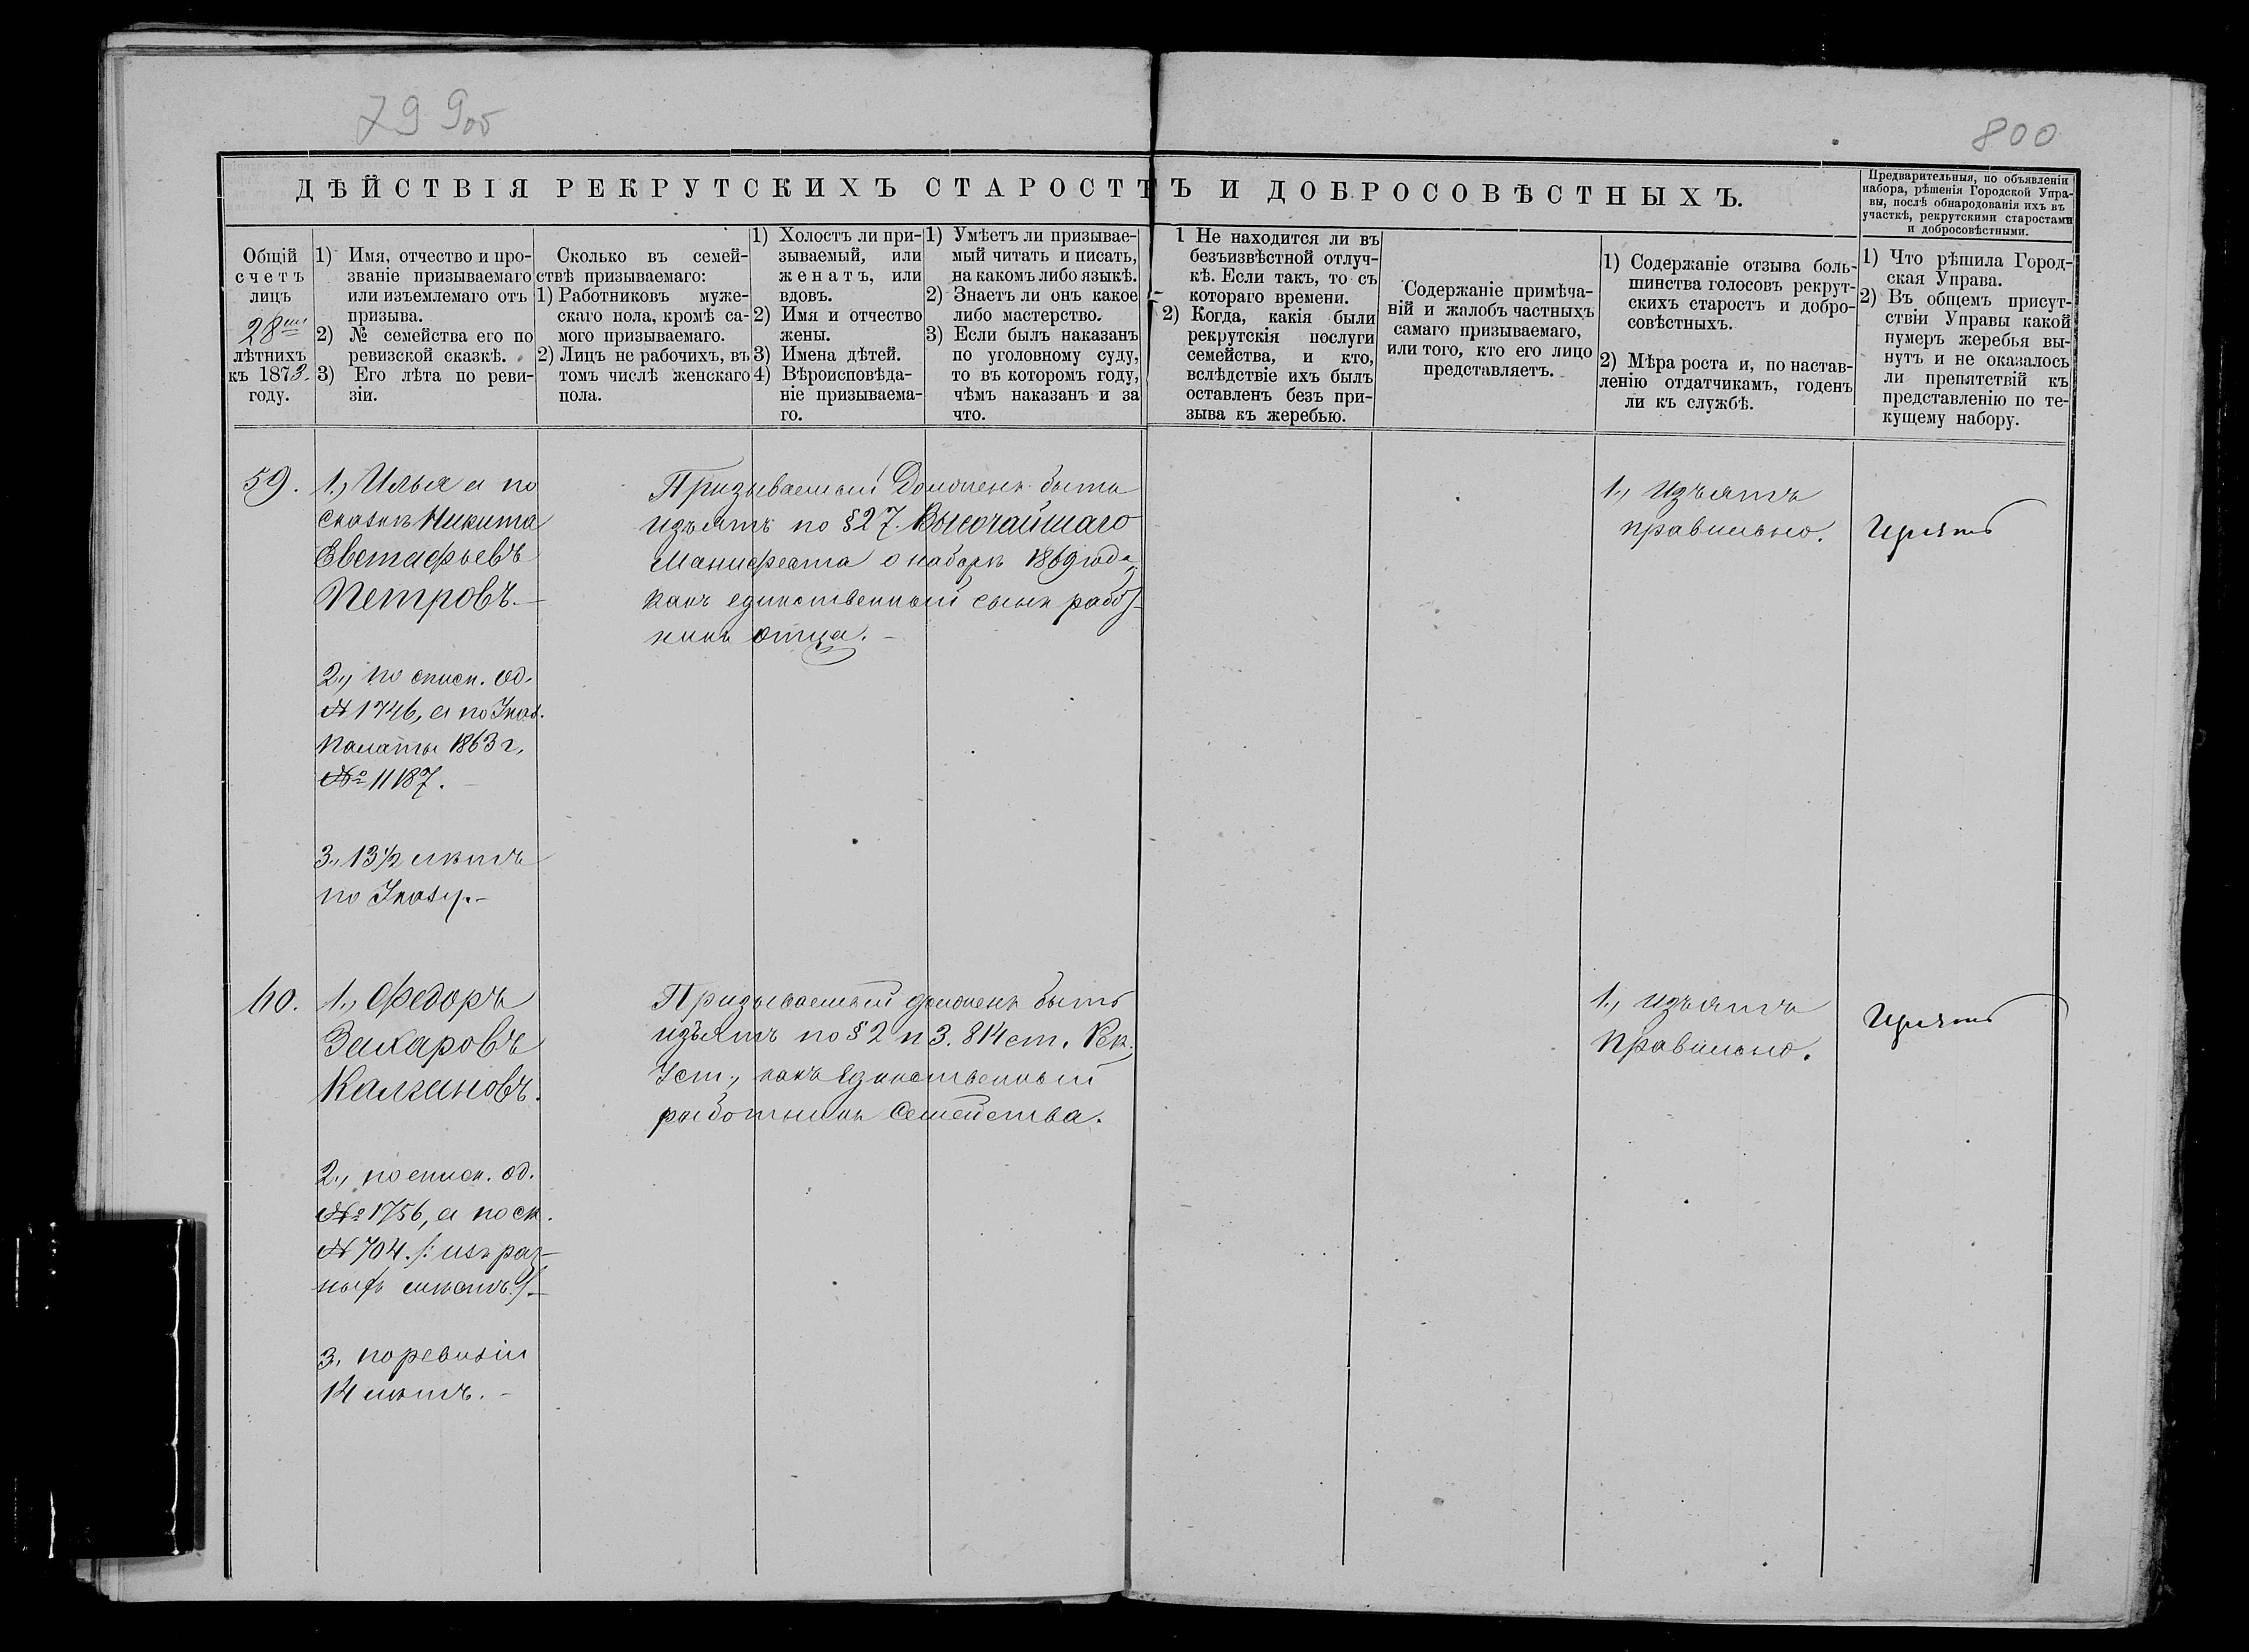 799об
800
ДѢЙСТВІЯ РЕКРУТСКИХЪ СТАРОСТЪ И ДОБРОСОВѢСТНЫХЪ.
Предварительныя, по объявленіи
набора, рѣшенія Городской Упра-
вы, послѣ обнародованія ихъ въ
участкѣ, рекрутскими старостами
и добросовѣстными.
Общій
счетъ
лицъ
28ми
лѣтнихъ
къ 1873.
году.
1) Имя, отчество и про-
званіе призываемаго
или изъемлемаго отъ
призыва.
2) № семейства его по
ревизской сказкѣ.
3) Его лѣта по реви-
зіи.
Сколько въ семей-
ствѣ призываемаго:
1) Работниковъ муже-
скаго пола, кромѣ са-
мого призываемаго.
2) Лицъ не рабочихъ, въ
томъ числѣ женскаго
пола.
1) Холостъ ли при-
зываемый, или
женатъ, или
вдовъ.
2) Имя и отчество
жены.
3) Имена дѣтей.
4) Вѣроисповѣда-
ніе призываема-
го.
1) Умѣетъ ли призывае-
мый читать и писать,
на какомъ либо языкѣ.
2) Знаетъ ли онъ какое
либо мастерство.
3) Если былъ наказанъ
по уголовному суду,
то въ которомъ году,
чѣмъ наказанъ и за
что.
1 Не находится ли въ
безъизвѣстной отлуч-
кѣ. Если такъ, то съ
котораго времени.
2) Когда, какія были
рекрутскія послуги
семейства, и кто,
вслѣдствіе ихъ былъ
оставленъ безъ при-
зыва къ жеребью.
Содержаніе примѣча-
ній и жалобъ частныхъ
самаго призываемаго,
или того, кто его лицо
представляетъ.
1) Содержаніе отзыва боль-
шинства голосовъ рекрут-
скихъ старостъ и добро-
совѣстныхъ.
2) Мѣра роста и, по настав-
ленію отдатчикамъ, годенъ
ли къ службѣ.
1) Что рѣшила Город-
ская Управа.
2) Въ общемъ присут-
ствіи Управы какой
нумеръ жеребья вы-
нутъ и не оказалось
ли препятствій къ
представленію по те-
кущему набору.
59.
1., Илья а по
сказкѣ Никита
Евстафьевъ
Петровъ.—
2., по списк. од.
№ 1746, а по Указ.
Палаты 1863 г.
№ 11187.—
3., 13½ лѣтъ
по Указу.—
Призываемый Долженъ быть
изъятъ по §27. Высочайшаго
Манифеста о наборѣ 1869 года,
какъ единственный сынъ
отца.—
1., Изъятъ
правильно.
60.
1., Федоръ
Захаровъ
Калгановъ.
2., по списк. од.
№ 1756, а по ск.
№ 704. /: изъ раз-
ныхъ мѣстъ :/.—
3. по ревизіи
14 лѣтъ.—
Призываемый долженъ быть
изъятъ по § 2 п 3. 814 ст. Рек.
Уст., какъ единственный
работникъ Семейства.
1., изъятъ
Правильно.